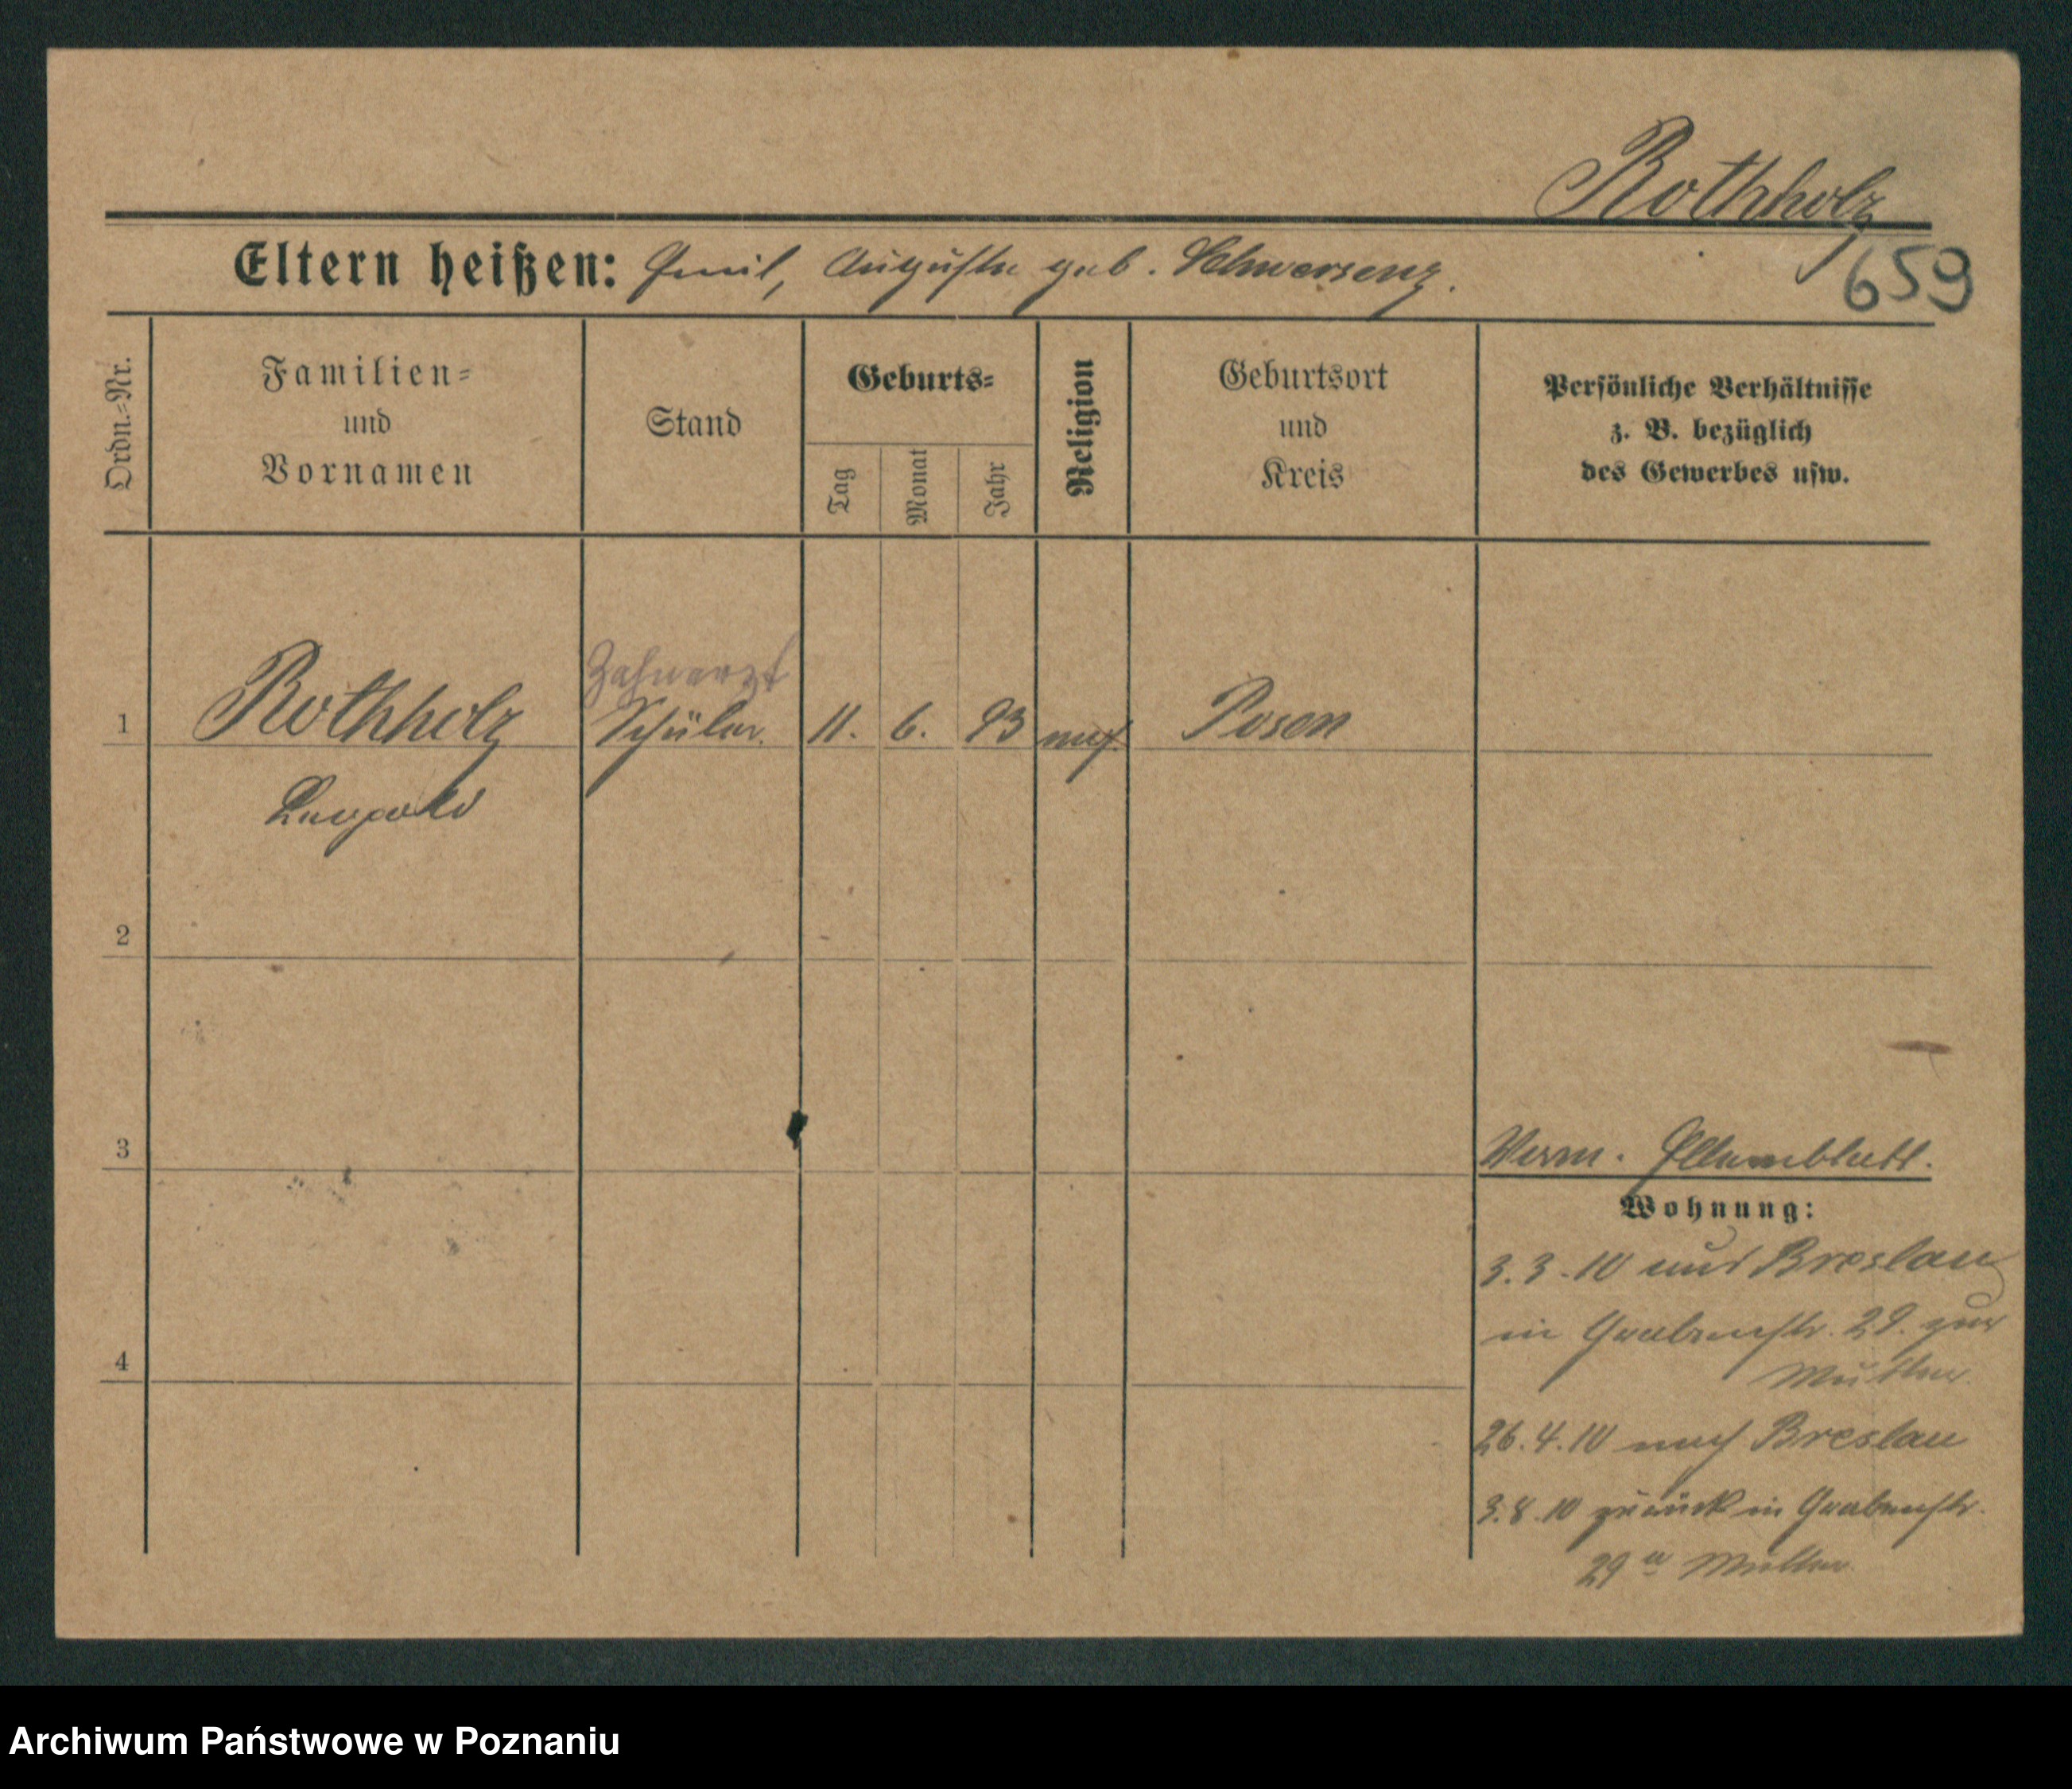 Rothholz
Eltern heißen: Emil, Auguste geb. Schwersenz.
659
Ordn.=Nr.
Familien=
und
Vornamen
Stand
Geburts=
Tag
Monat
Jahr
Religion
Geburtsort
und
Kreis
Persönliche Verhältnisse
z. B. bezüglich
des Gewerbes usw.
Zahnarzt
1 Rothholz Schüler. 11. 6. 93 mos. Posen
Leopold
2
3
Verm. Elternblatt.
Wohnung:
3.3.10 aus Breslau
in Grabenstr. 29. zur
Mutter.
4
26.4.10 nach Breslau
3.8.10 zurück in Grabenstr.
29 Mutter
Archiwum Państwowe w Poznaniu